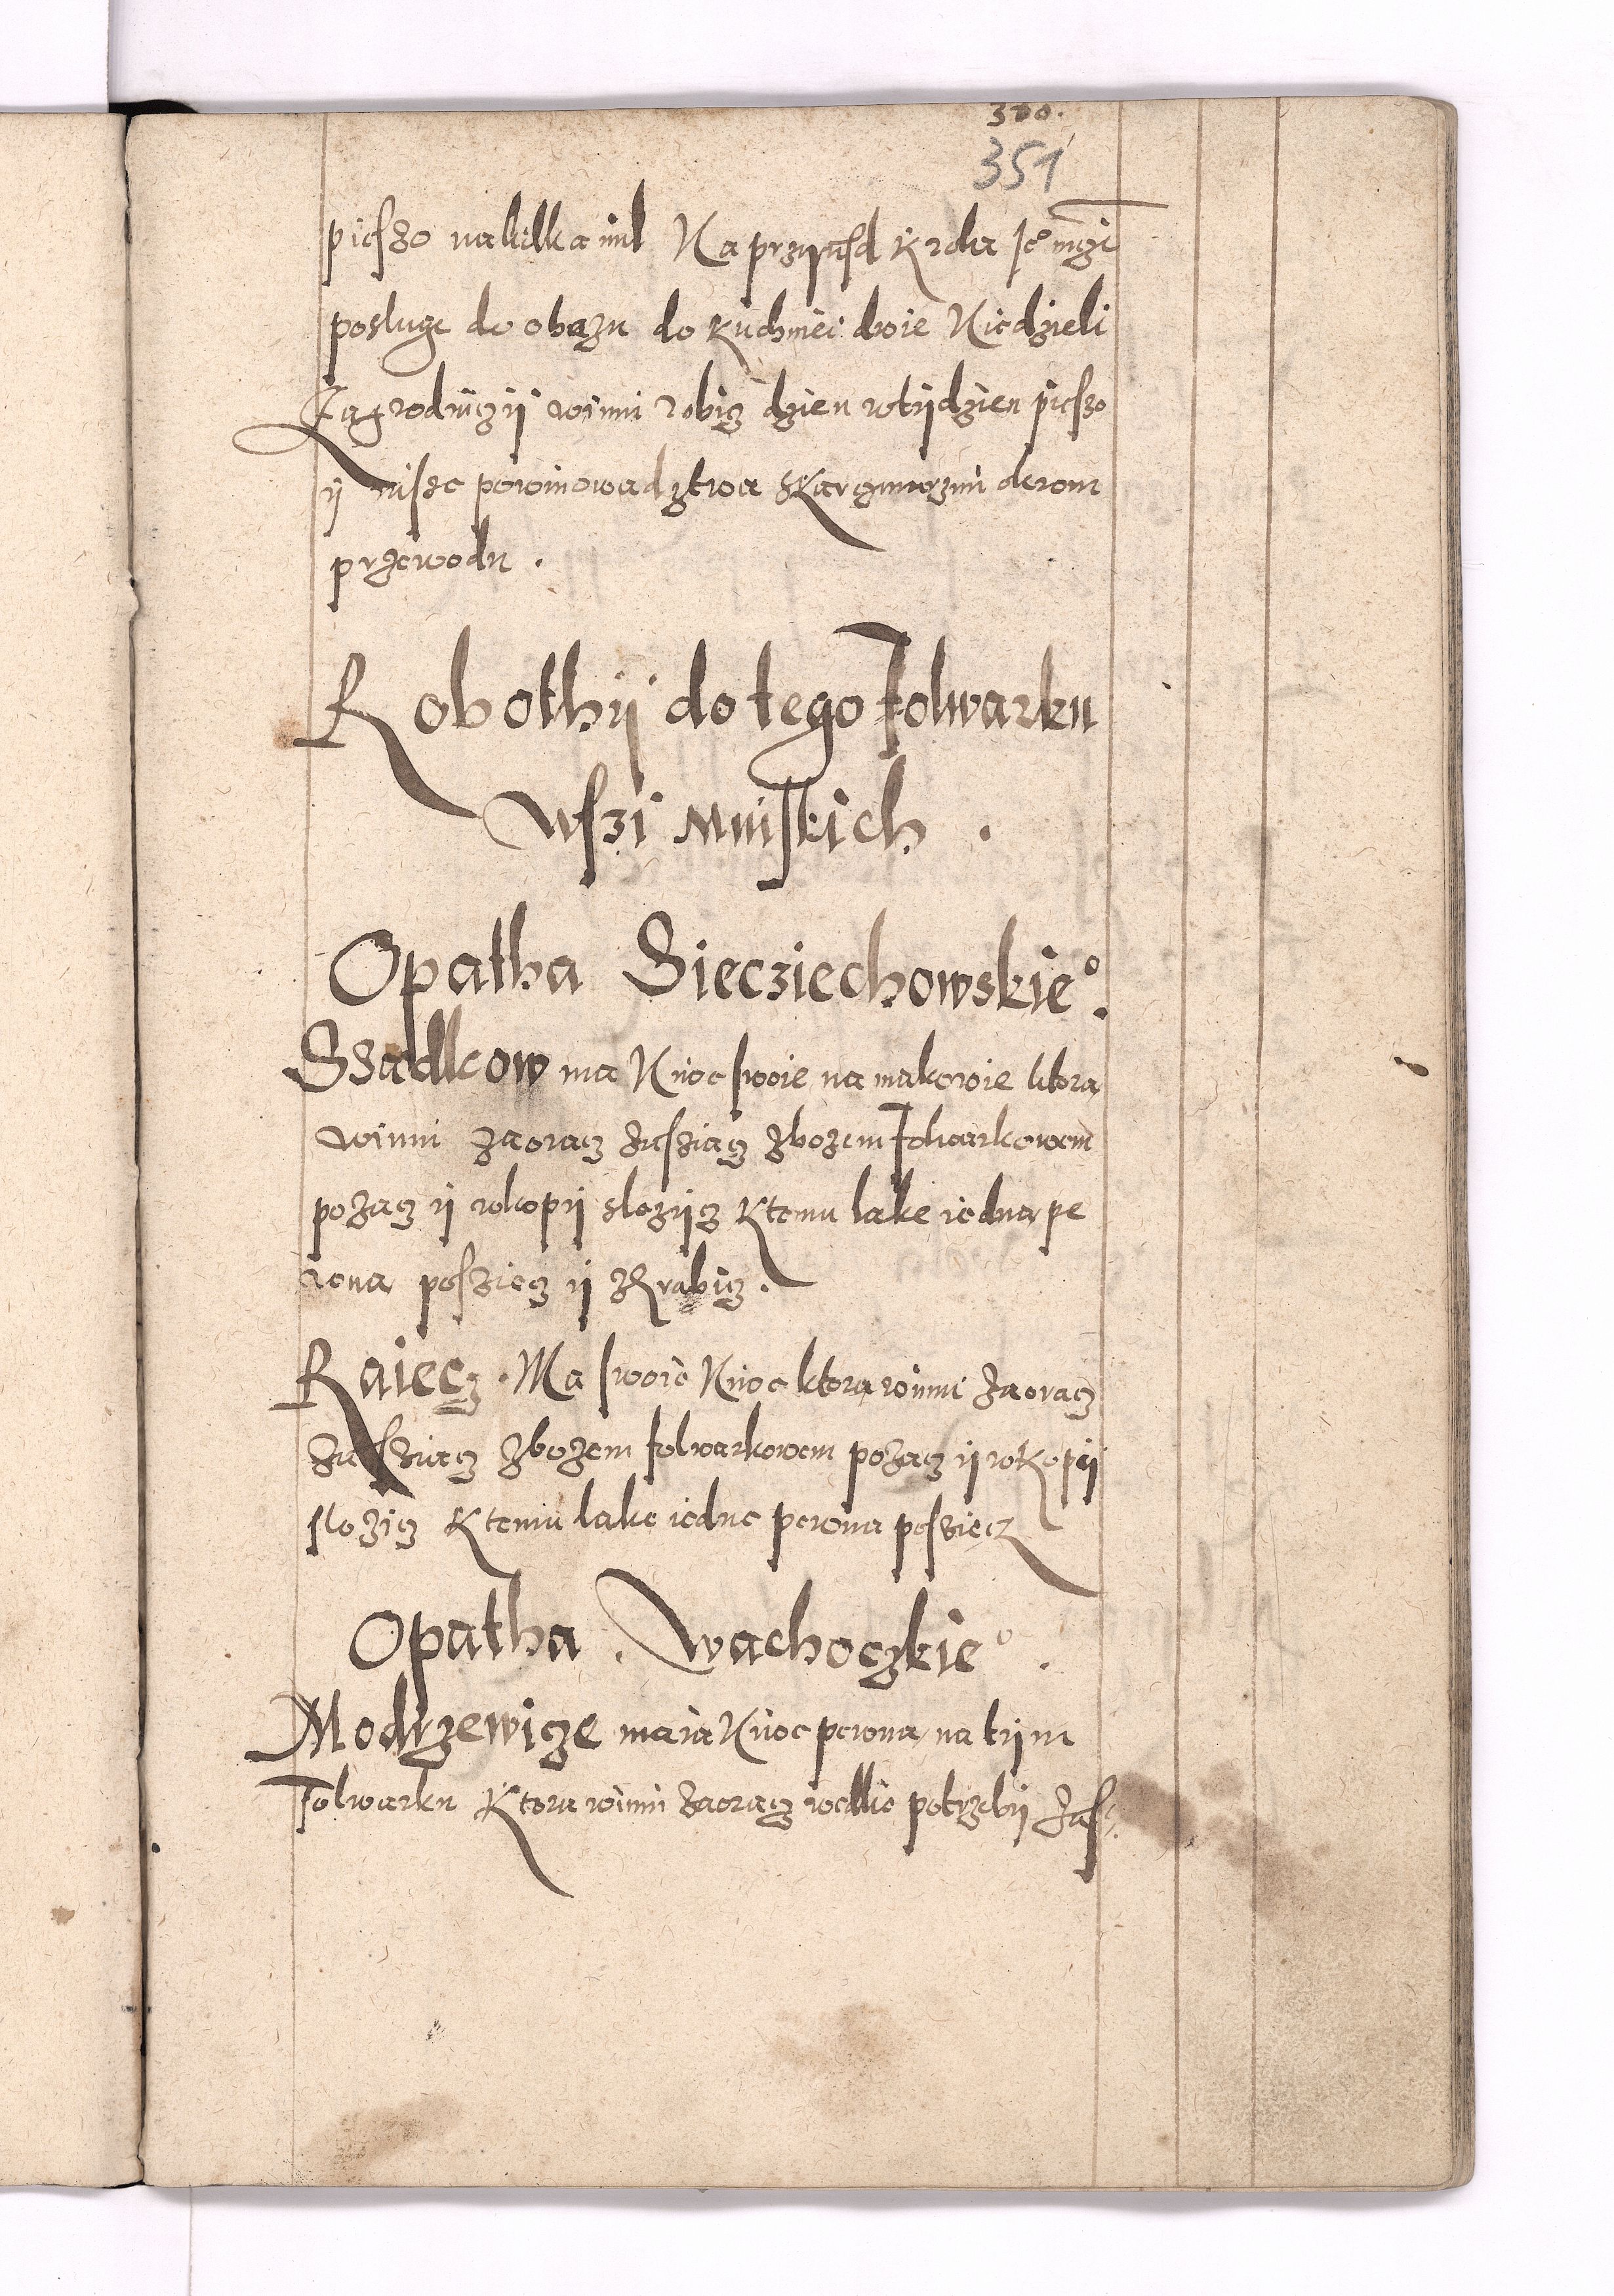 300.
351
pieszo na kilka mil Na przyiasd krola Jº mczi
posluge do obozu do kuchniei dwie Niedzieli
Zagrodniczÿ winni robicz dzien wtÿdzien pieszo
ÿ insze powinowadztwa
przewodu .
Robothÿ do tego folwarku
wszi Mniskich .
Opatha Siecziechowskieº.
Szadkow ma Niwe swoie na makowie ktora
winni zaoracz zasziacz zbozem folwarkowem
pozacz ÿ wkopÿ slozÿcz Ktemu lake iedna pe
wna posziecz ÿ zgrabicz .
Raiecz . Ma swoie Niwe ktora winni zaoracz
zasziacz zbozem folwarkowem pozacz ÿ wkopÿ
slozicz Ktemu lake iedne pewna posziecz
Opatha . Wachoczkieº .
Modrzewicze maia Niwe pewna na tÿm
folwarku Ktora winni zaoracz wedlie potrzebÿ zasz